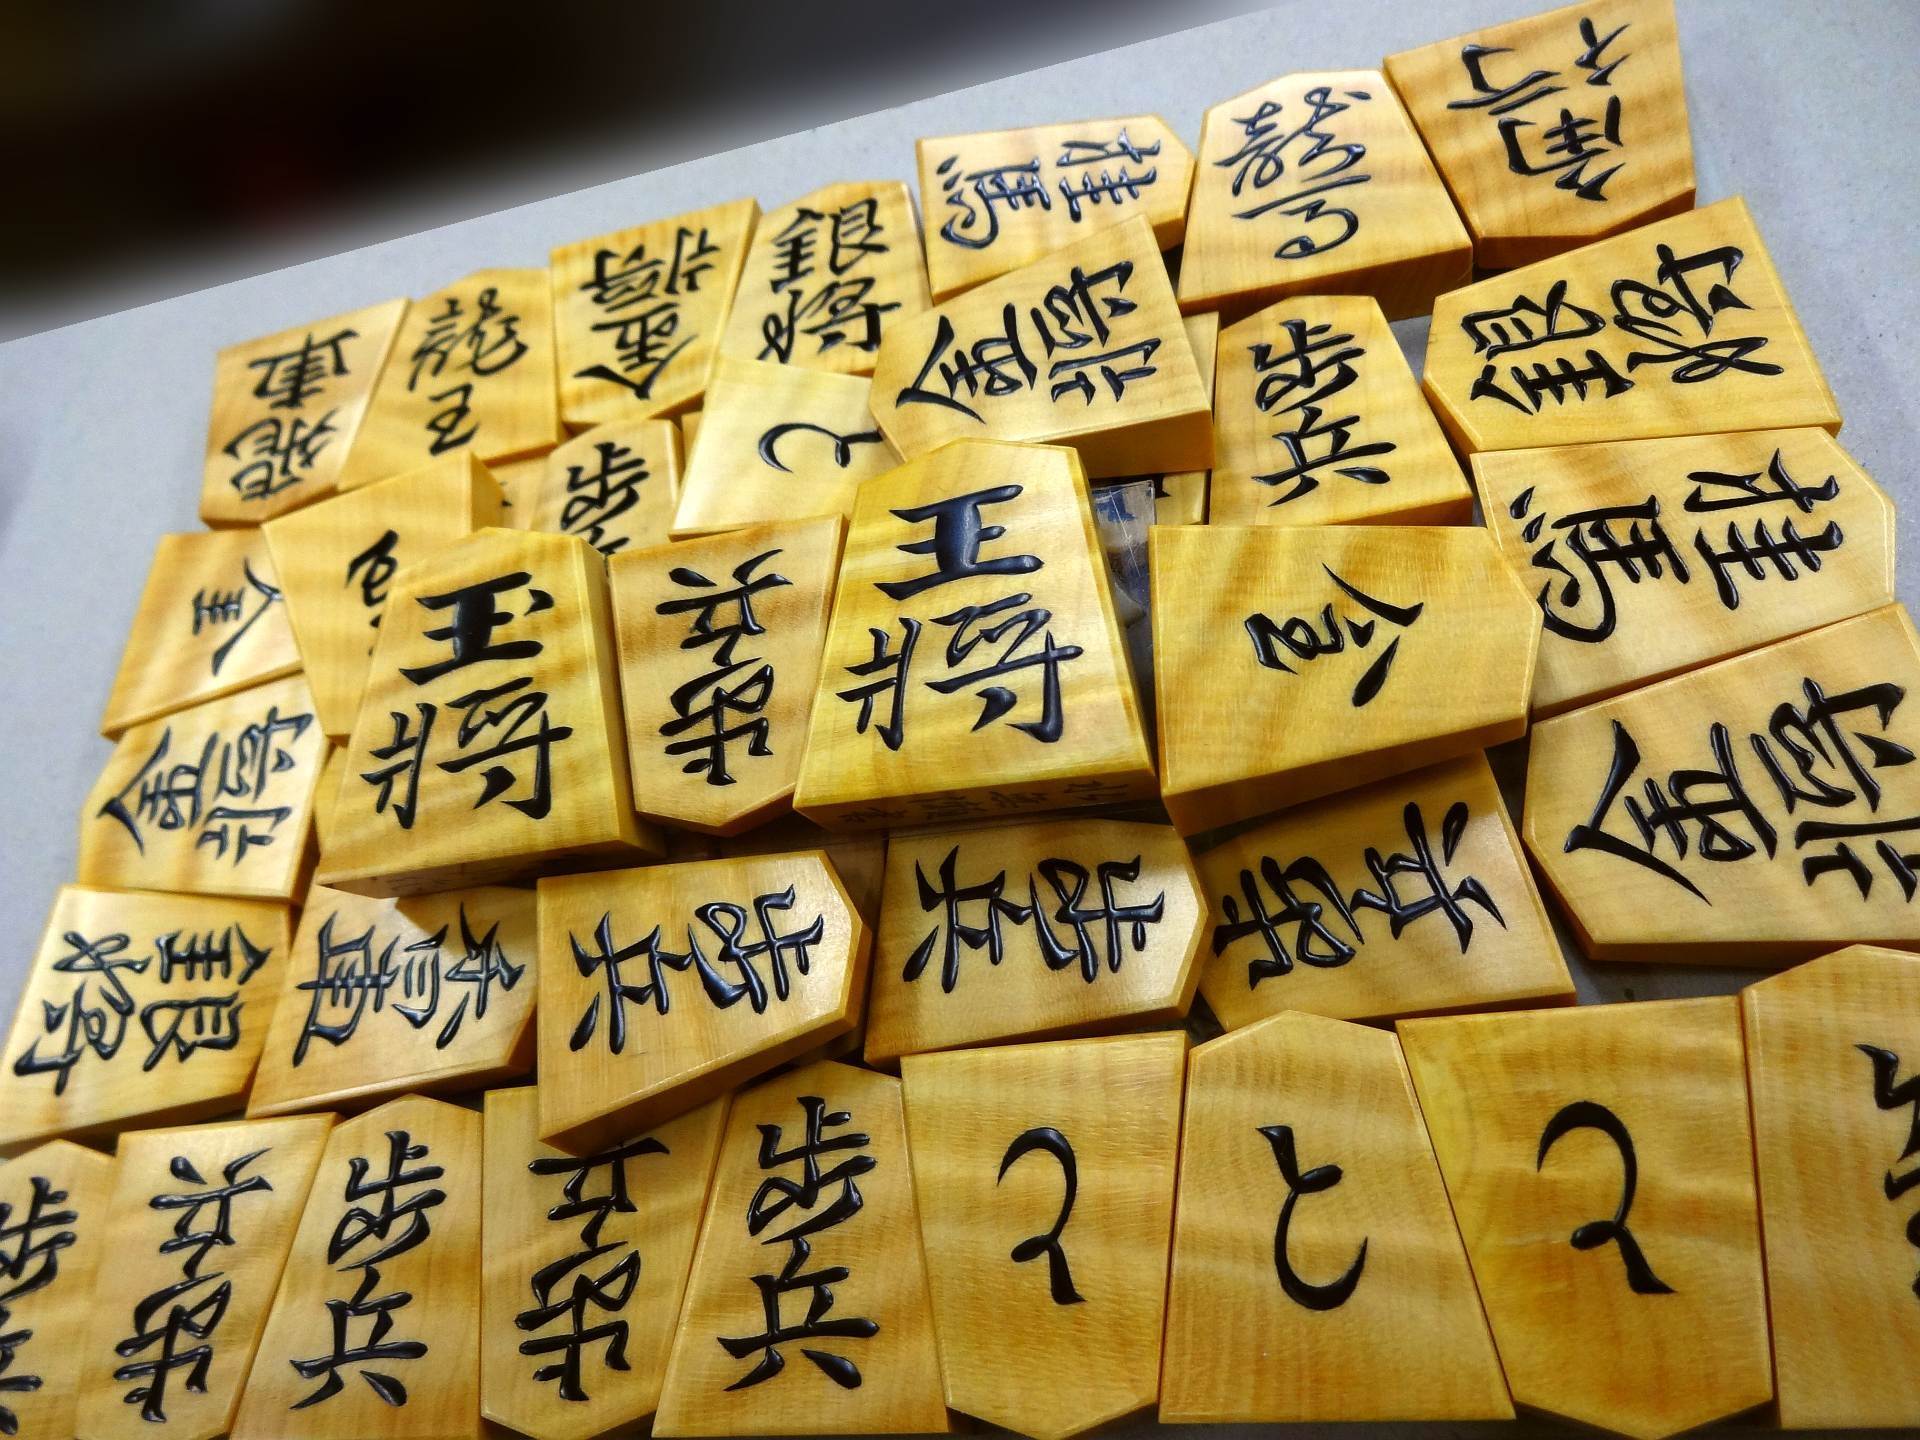 角行
龍馬
桂馬
銀将
金将
龍王
飛車
金将
歩兵
銀将
と
歩
桂馬
王将
玉将
歩兵
全
金将
金将
歩兵
歩兵
歩兵
香車
銀将
歩兵
歩兵
歩兵
歩兵
歩兵
と
と
と